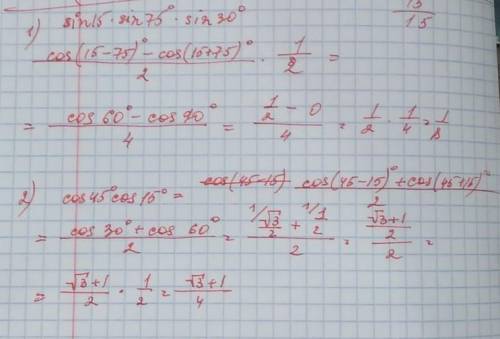 13
15
1) sin15·sin75°·sin30°
cos(15-75)° - cos(15+75)° / 2 · 1/2 =
= cos60° - cos90° / 4 = 1/2 - 0 / 4 = 1/2 · 1/4 = 1/8
2) cos45°cos15° = cos(45-15) cos(45-15)° + cos(45+15)° / 2
= cos30° + cos60° / 2 = 1/ √3/2 + 1/ 1/2 / 2 = √3+1 / 2 / 2 =
= √3+1 / 2 · 1/2 = √3+1 / 4